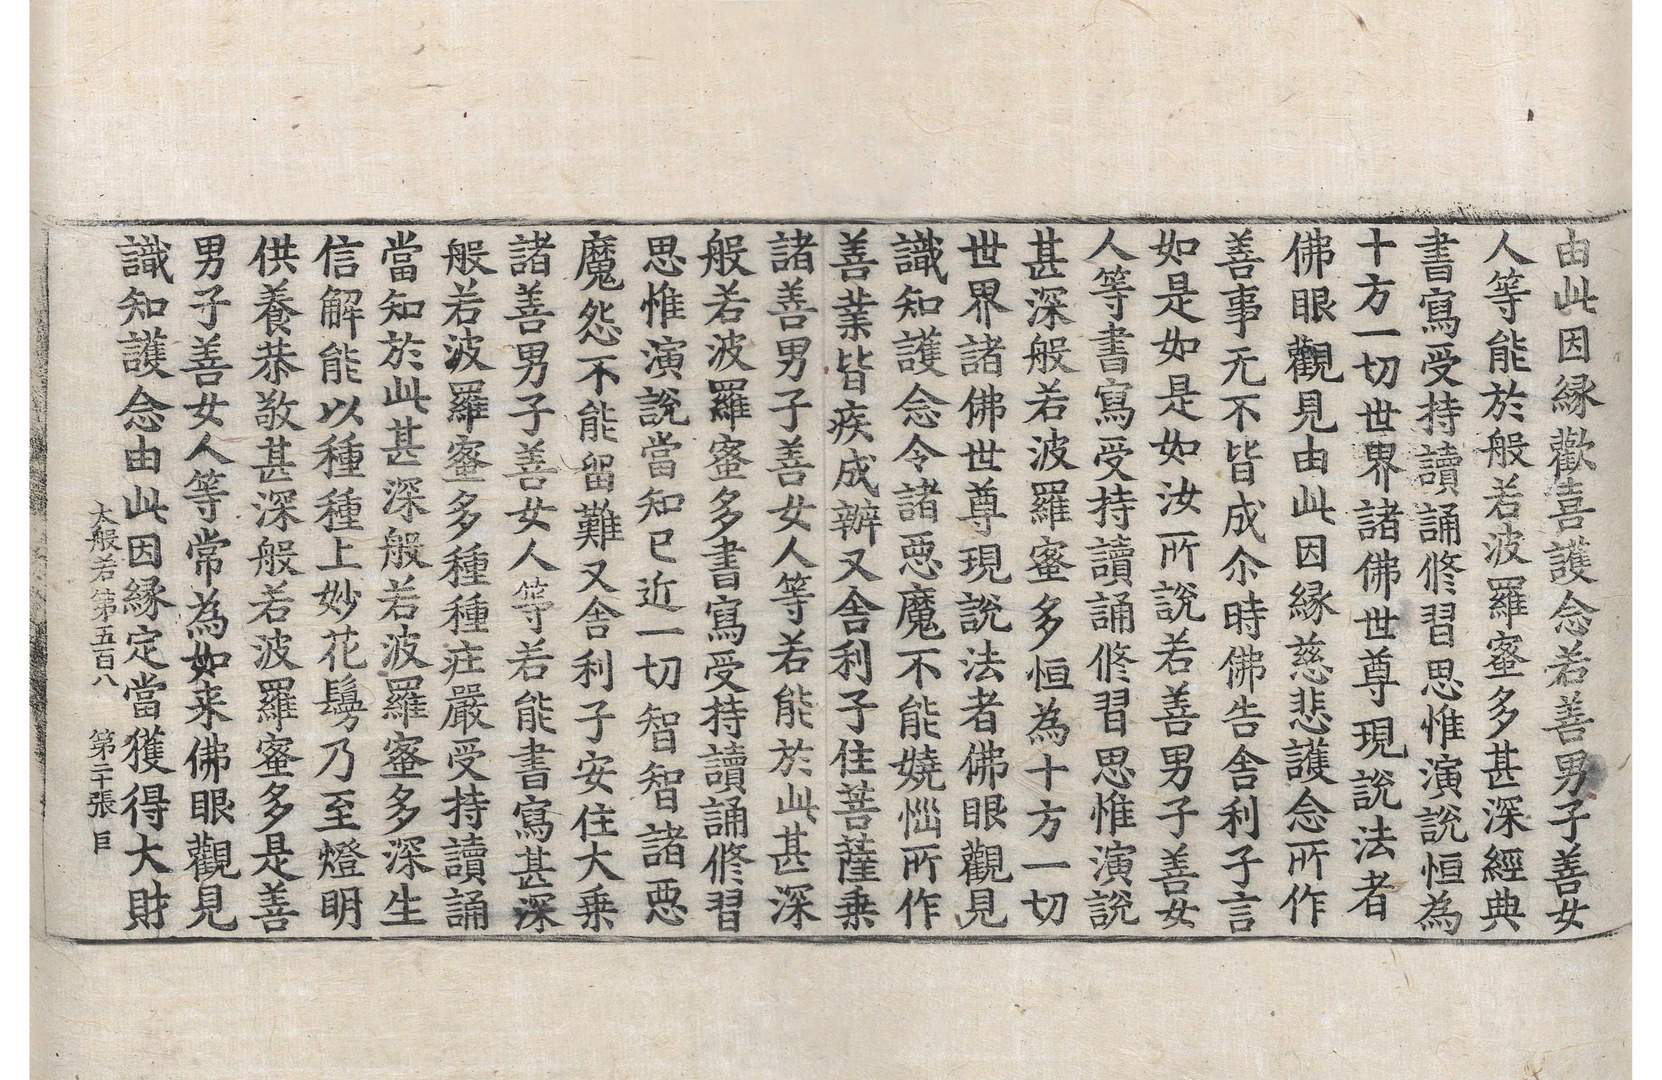 由此因縁歡喜護念若善男子善女
人等能於般若波羅蜜多甚深經典
書寫受持讀誦修習思惟演說恒為
十方一切世界諸佛世尊現說法者
佛眼觀見由此因縁慈悲護念所作
善事无不皆成尒時佛告舍利子言
如是如是如汝所說若善男子善女
人等書寫受持讀誦修習思惟演說
甚深般若波羅蜜多恒為十方一切
世界諸佛世尊現說法者佛眼觀見
識知護念令諸惡魔不能嬈惱所作
善業皆疾成辦又舍利子住菩薩乗
諸善男子善女人等若能於此甚深
般若波羅蜜多書寫受持讀誦修習
思惟演說當知已近一切智智諸惡
魔怨不能留難又舍利子安住大乗
諸善男子善女人等若能書寫甚深
般若波羅蜜多種種莊嚴受持讀誦
當知於此甚深般若波羅蜜多深生
信解能以種種上妙花鬘乃至燈明
供養恭敬甚深般若波羅蜜多是善
男子善女人等常為如来佛眼觀見
識知護念由此因縁定當獲得大財
大般若第五百八 第二十張 臣